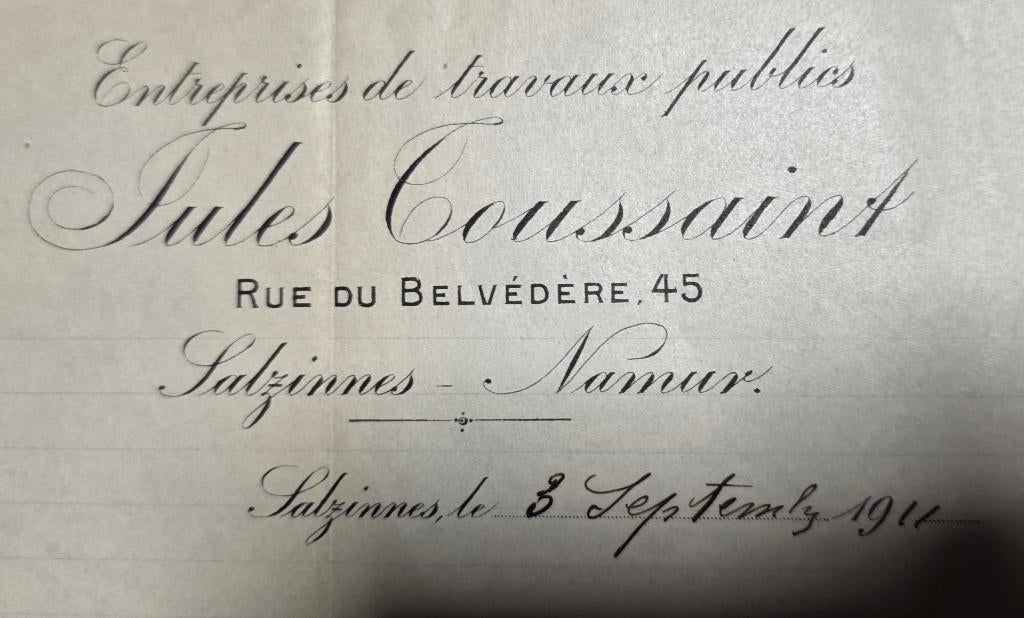 Entreprises de travaux publics
Jules Toussaint
RUE DU BELVÉDÈRE, 45
Salzinnes - Namur.
Salzinnes, le 3 Septemb 1911